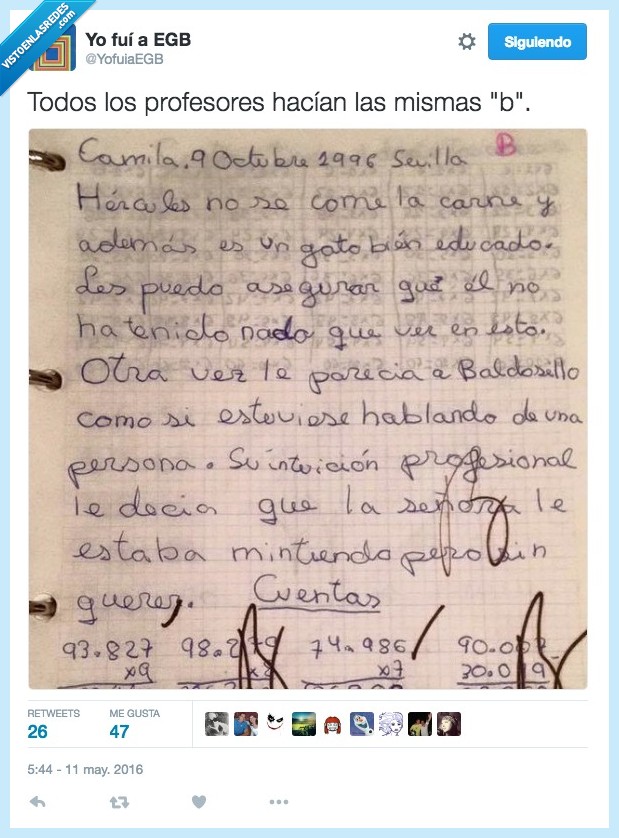 VISTOENLASREDES
.com
Yo fuí a EGB
@YofuiaEGB
Siguiendo
Todos los profesores hacían las mismas "b".
B
Camila. 9 Octubre 1996 Sevilla
Hércules no se come la carne y
además es un gato bién educado.
Les puedo asegurar qué él no
ha tenido nada que ver en esto.
Otra vez le parecia a Baldosillo
como si estuviese hablando de una
persona. Su intuición profesional
le decia que la señora le
estaba mintiendo pero sin
querer. Cuentas
93.827 98.2 74.986 90.0
x9 x8 x7 30.019
RETWEETS ME GUSTA
26 47
5:44 - 11 may. 2016